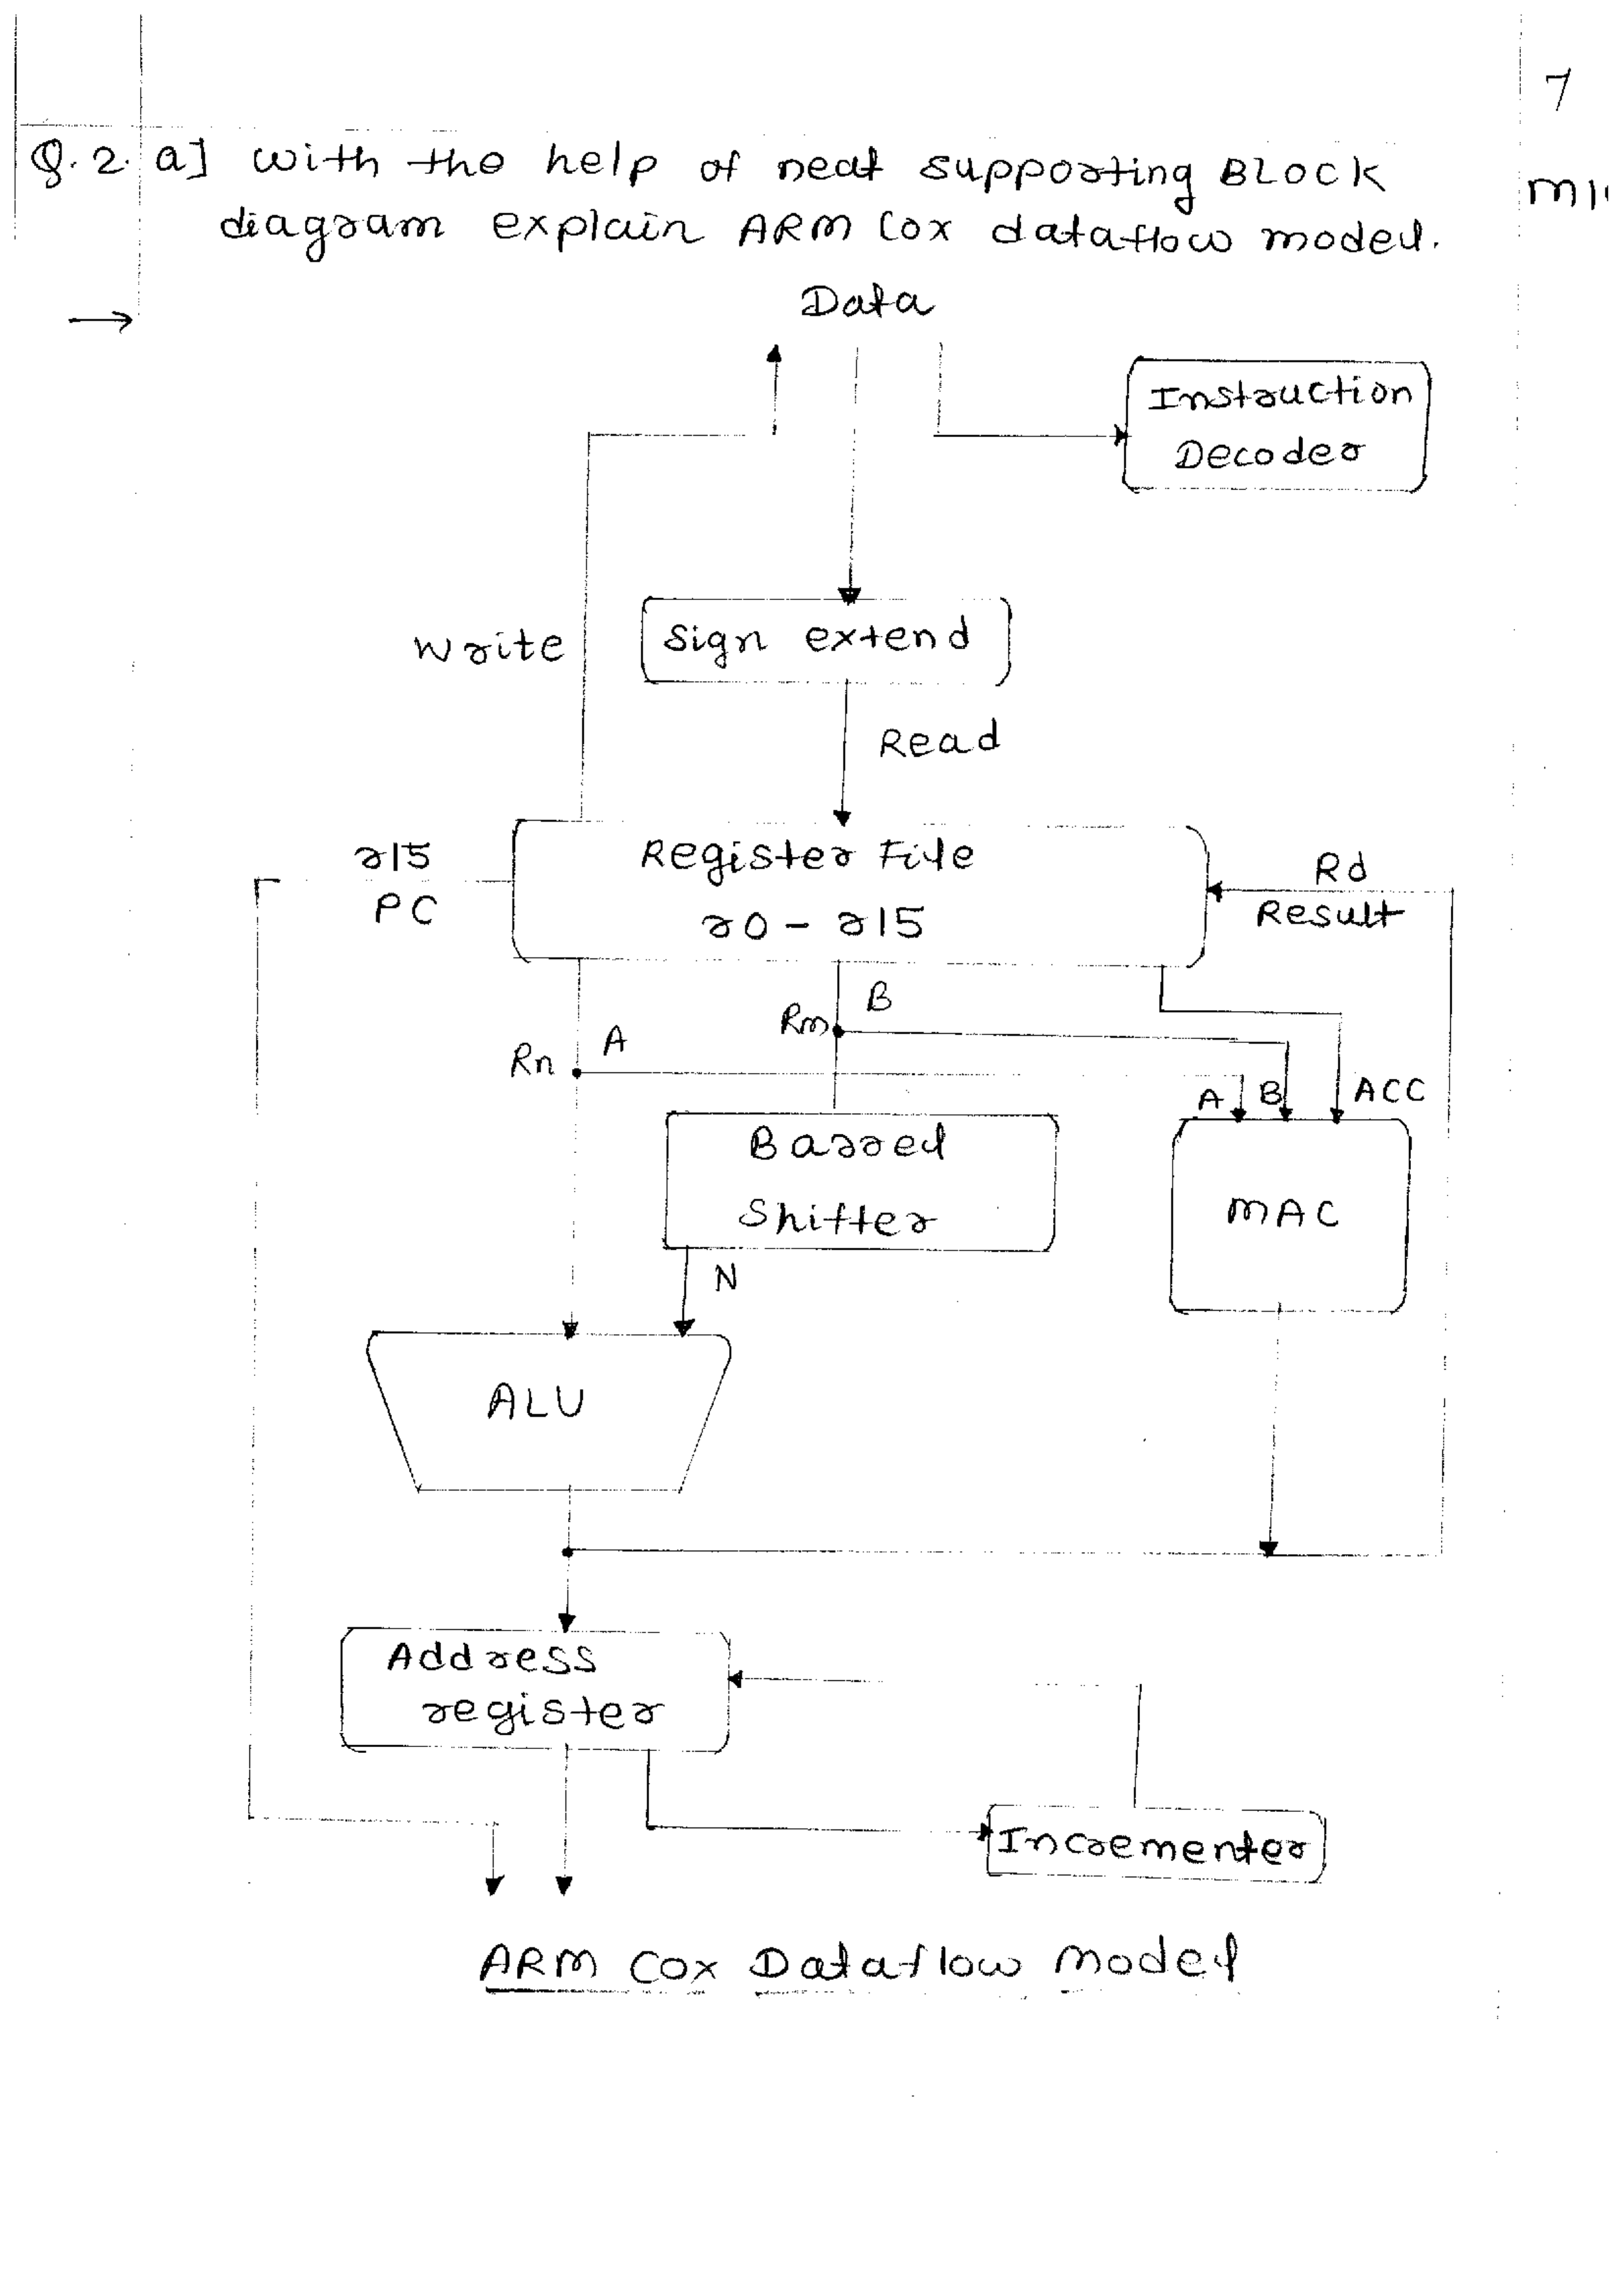 7
Q.2. a] with the help of neat supporting BLOCK
diagram explain ARM Cox dataflow model.
Data
Instruction
Decoder
Write
Sign extend
Read
r15
PC
Register File
r0 - r15
Rd
Result
Rn
A
Rm
B
A
B
ACC
Barrel
Shifter
N
MAC
ALU
Address
register
Incrementer
ARM Cox Dataflow model